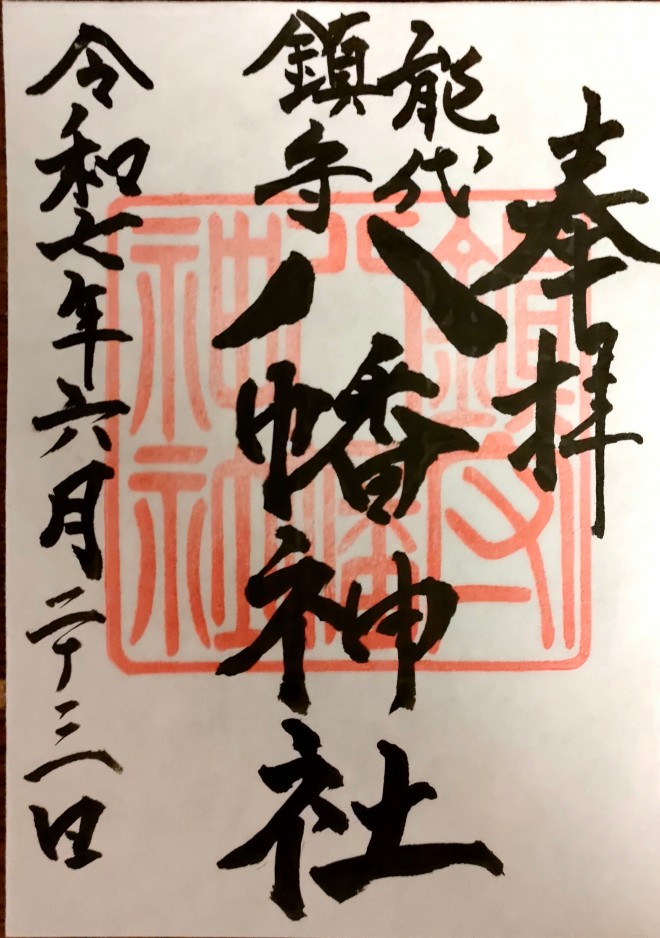 奉拝
能代
鎮守
八幡神社
令和七年六月二十三日
鎮守
八幡
神社